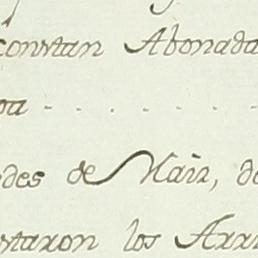 constan Abonada
oa . . . . . .
des de Mair, de
staron los Arri